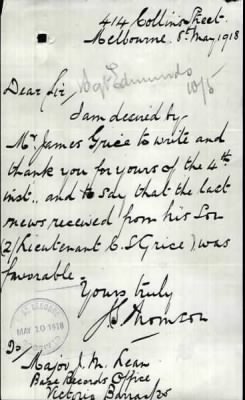 414 Collins Street.
Melbourne, 8th May, 1918
Dear Sir,
Ack Edmunds
10/5
I am desired by
Mr. James Grice to write and
thank you for yours of the 4th
inst., and to say that the last
news received from his Son
(2/Lieutenant C. S. Grice), was
favorable.
Yours truly
J. Thomson
MAY 10 1918
To
Major J. M. Lean
Base Records Office
Victoria Barracks